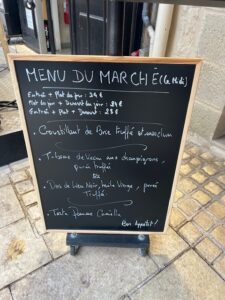 MENU DU MARCHÉ (Le Midi)
Entrée + Plat du jour : 24 €
Plat du jour + Dessert du jour : 24 €
Entrée + Plat + Dessert : 28 €
- Croustillant de Brie Truffé et mesclun
- T-bone de Veau aux champignons,
purée truffée
ou
- Dos de Lieu Noir, huile Vierge, purée
Truffée
- Tarte pomme Cannelle
Bon Appétit !